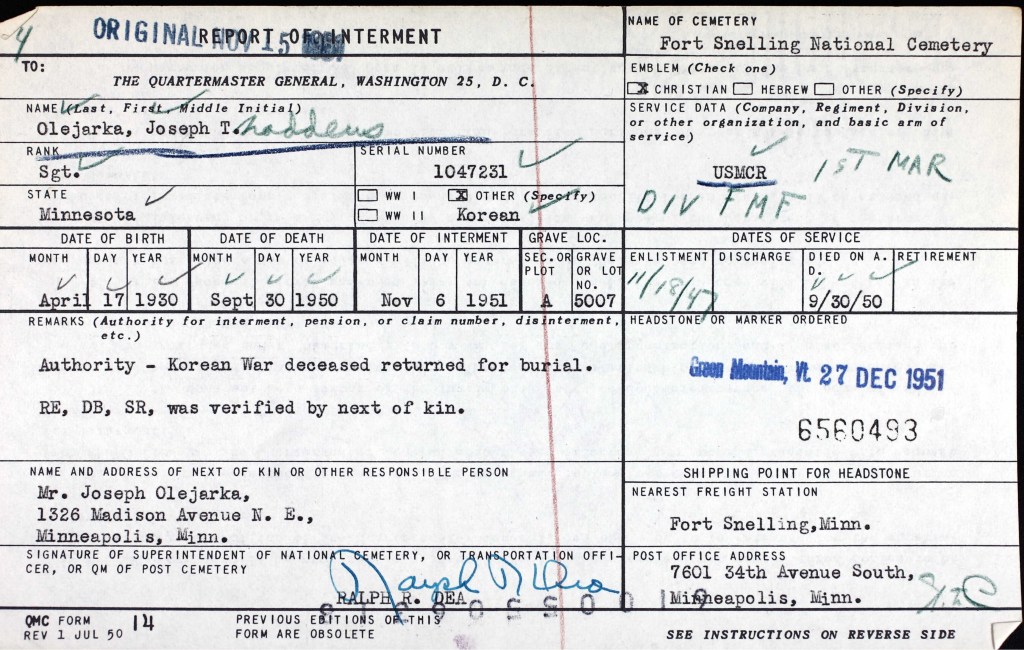 4
ORIGINAL NOV 15 1951
REPORT OF INTERMENT
NAME OF CEMETERY
Fort Snelling National Cemetery
TO:
THE QUARTERMASTER GENERAL, WASHINGTON 25, D. C.
EMBLEM (Check one)
X CHRISTIAN HEBREW OTHER (Specify)
NAME (Last, First, Middle Initial)
Olejarka, Joseph T.haddeus
SERVICE DATA (Company, Regiment, Division,
or other organization, and basic arm of
service)
USMCR 1ST MAR
DIV FMF
RANK
Sgt.
SERIAL NUMBER
1047231
STATE
Minnesota
WW I X OTHER (Specify)
WW II Korean
DATE OF BIRTH DATE OF DEATH DATE OF INTERMENT GRAVE LOC. DATES OF SERVICE
MONTH DAY YEAR MONTH DAY YEAR MONTH DAY YEAR SEC. OR PLOT GRAVE OR LOT NO. ENLISTMENT DISCHARGE DIED ON A. D. RETIREMENT
April 17 1930 Sept 30 1950 Nov 6 1951 A 5007 11/18/47 9/30/50
REMARKS (Authority for interment, pension, or claim number, disinterment,
etc.)
Authority - Korean War deceased returned for burial.
RE, DB, SR, was verified by next of kin.
HEADSTONE OR MARKER ORDERED
Green Mountain, Vt. 27 DEC 1951
6560493
NAME AND ADDRESS OF NEXT OF KIN OR OTHER RESPONSIBLE PERSON
Mr. Joseph Olejarka,
1326 Madison Avenue N. E.,
Minneapolis, Minn.
SHIPPING POINT FOR HEADSTONE
NEAREST FREIGHT STATION
Fort Snelling, Minn.
SIGNATURE OF SUPERINTENDENT OF NATIONAL CEMETERY, OR TRANSPORTATION OFFI-
CER, OR QM OF POST CEMETERY
Ralph R. Dea
RALPH R. DEA
POST OFFICE ADDRESS
7601 34th Avenue South,
Minneapolis, Minn.
QMC FORM 14
REV 1 JUL 50
PREVIOUS EDITIONS OF THIS
FORM ARE OBSOLETE
SEE INSTRUCTIONS ON REVERSE SIDE